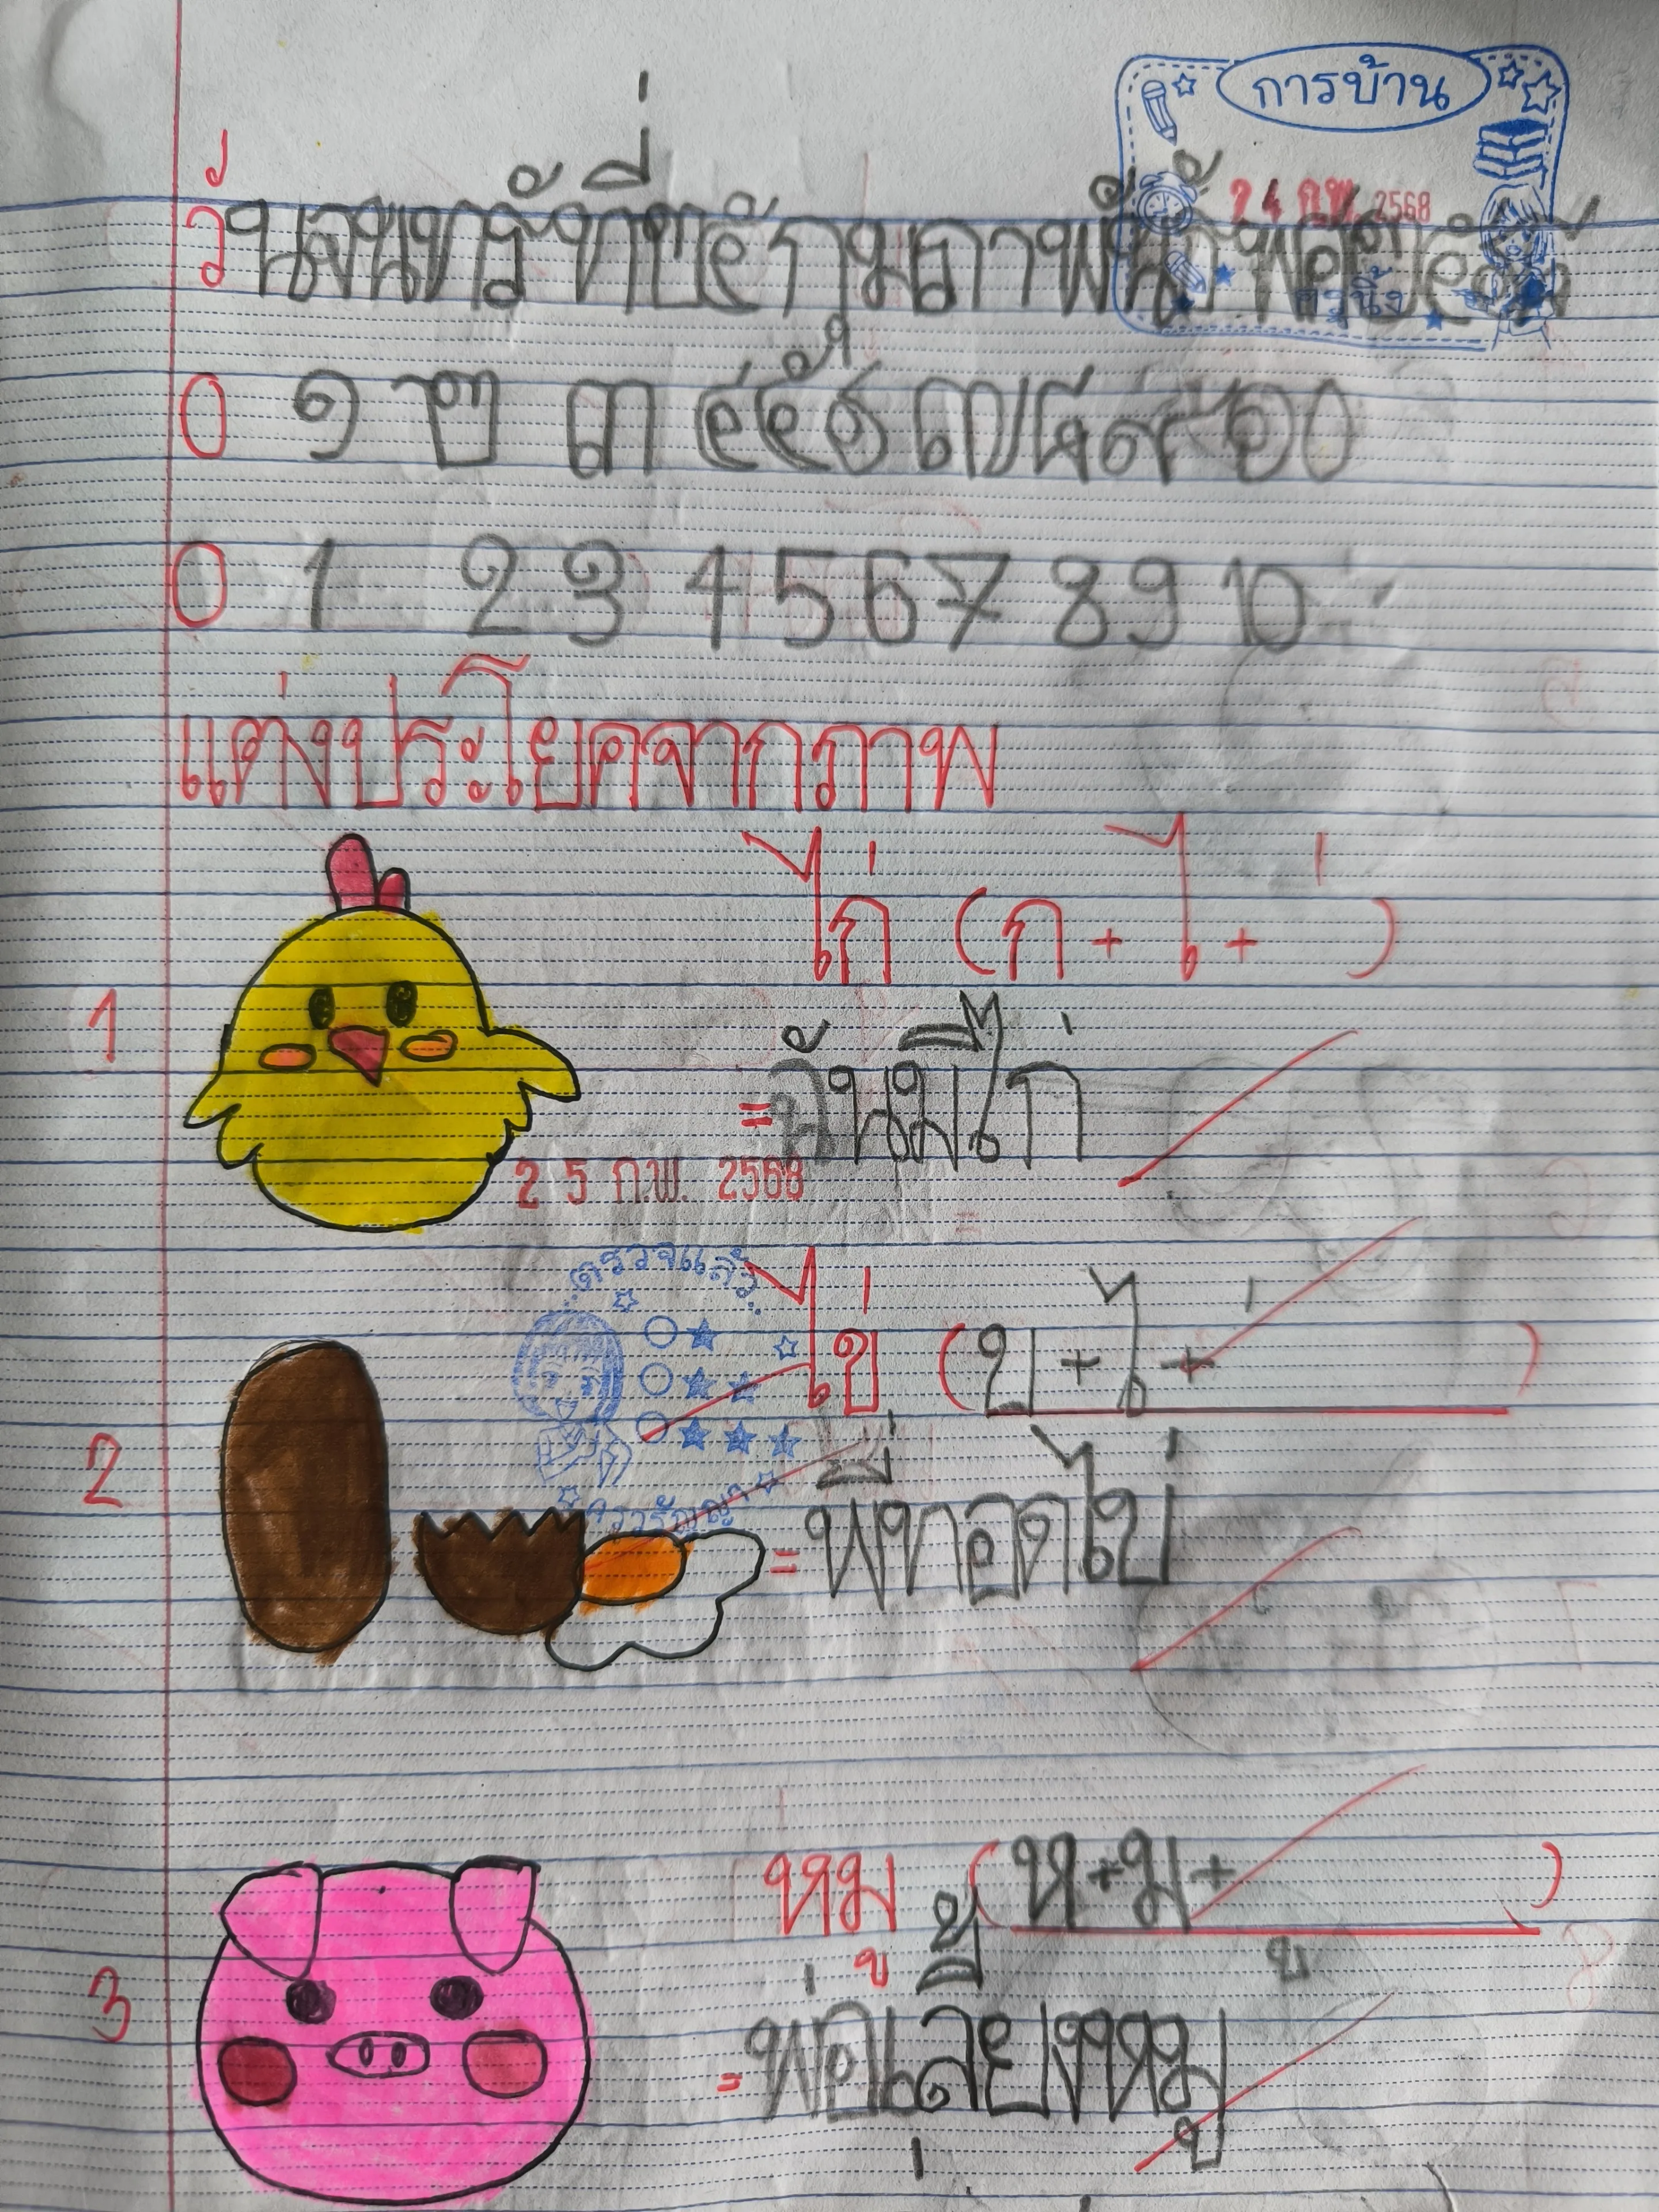 การบ้าน
24 ก.พ. 2568
วันจันทร์ ที่ ๒๔ กุมภาพันธ์ พ.ศ. ๒๕๖๘
ครูนิ้ง
0 ๑ ๒ ๓ ๔ ๕ ๖ ๗ ๘ ๙ ๑๐
0 1 2 3 4 5 6 7 8 9 10
แต่งประโยคจากภาพ
ไก่ (ก + ไ + ่ )
1 = ฉันมีไก่
25 ก.พ. 2568
ตรวจแล้ว
ไข่ (ข + ไ + ่ )
2 = พี่ทอดไข่
หมู (ห + ม + ู )
3 = พ่อเลี้ยงหมู